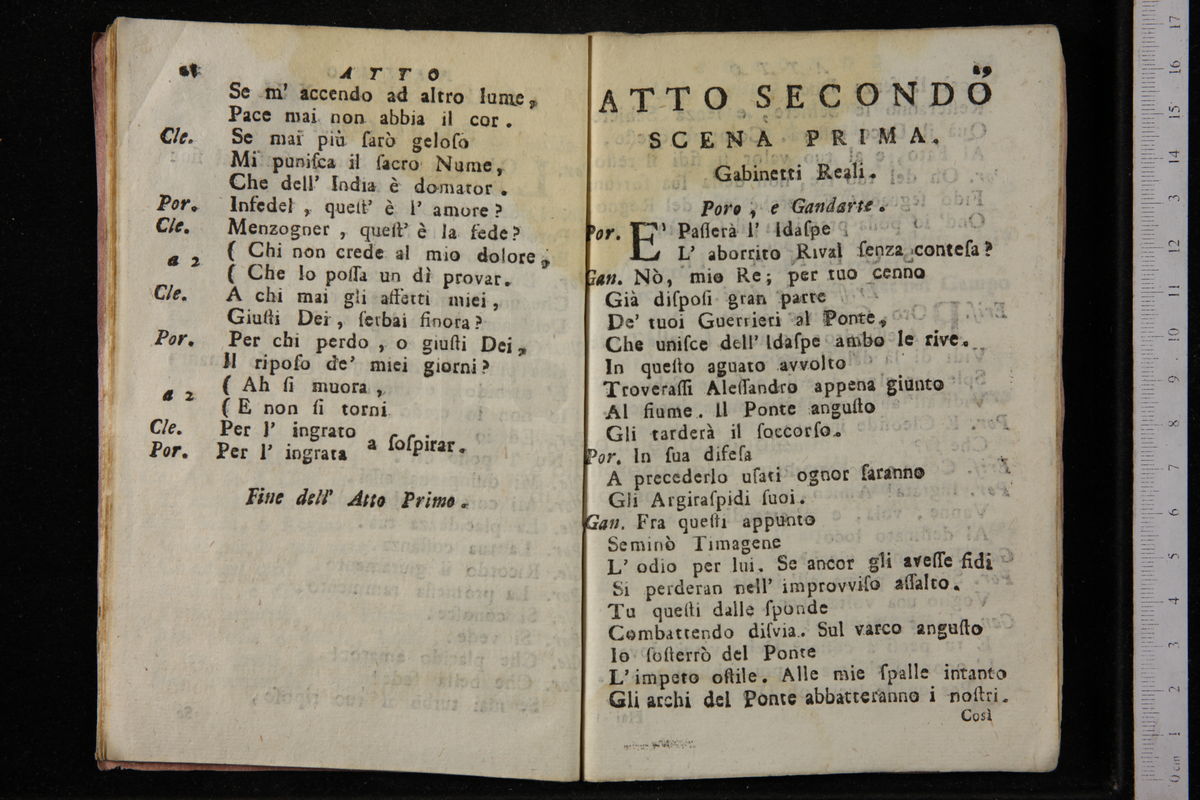 ATTO
Se m' accendo ad altro lume,
Pace mai non abbia il cor.
Cle. Se mai più ſarò geloſo
Mi puniſca il ſacro Nume,
Che dell' India è domator.
Por. Infedel, queſt' è l' amore?
Cle. Menzogner, queſt' è la fede?
a 2 ( Chi non crede al mio dolore,
( Che lo poſſa un dì provar.
Cle. A chi mai gli affetti miei,
Giuſti Dei, ſerbai finora?
Por. Per chi perdo, o giuſti Dei,
Il ripoſo de' miei giorni?
a 2 ( Ah ſi muora,
( E non ſi torni
Cle. Per l' ingrato
Por. Per l' ingrata a ſoſpirar.
Fine dell' Atto Primo.
29
ATTO SECONDO
SCENA PRIMA.
Gabinetti Reali.
Poro, e Gandarte.
Por. E' Paſſerà l' Idaſpe
L' aborrito Rival ſenza conteſa?
Gan. Nò, mio Re; per tuo cenno
Già diſpoſi gran parte
De' tuoi Guerrieri al Ponte,
Che uniſce dell' Idaſpe ambo le rive.
In queſto aguato avvolto
Troveraſſi Aleſſandro appena giunto
Al fiume. Il Ponte anguſto
Gli tarderà il ſoccorſo.
Por. In ſua difeſa
A precederlo uſati ognor ſaranno
Gli Argiraſpidi ſuoi.
Gan. Fra queſti appunto
Seminò Timagene
L' odio per lui. Se ancor gli aveſſe fidi
Si perderan nell' improvviſo aſſalto.
Tu queſti dalle ſponde
Combattendo diſvia. Sul varco anguſto
Io ſoſterrò del Ponte
L' impeto oſtile. Alle mie ſpalle intanto
Gli archi del Ponte abbatteranno i noſtri.
Così
0 cm 1 2 3 4 5 6 7 8 9 10 11 12 13 14 15 16 17